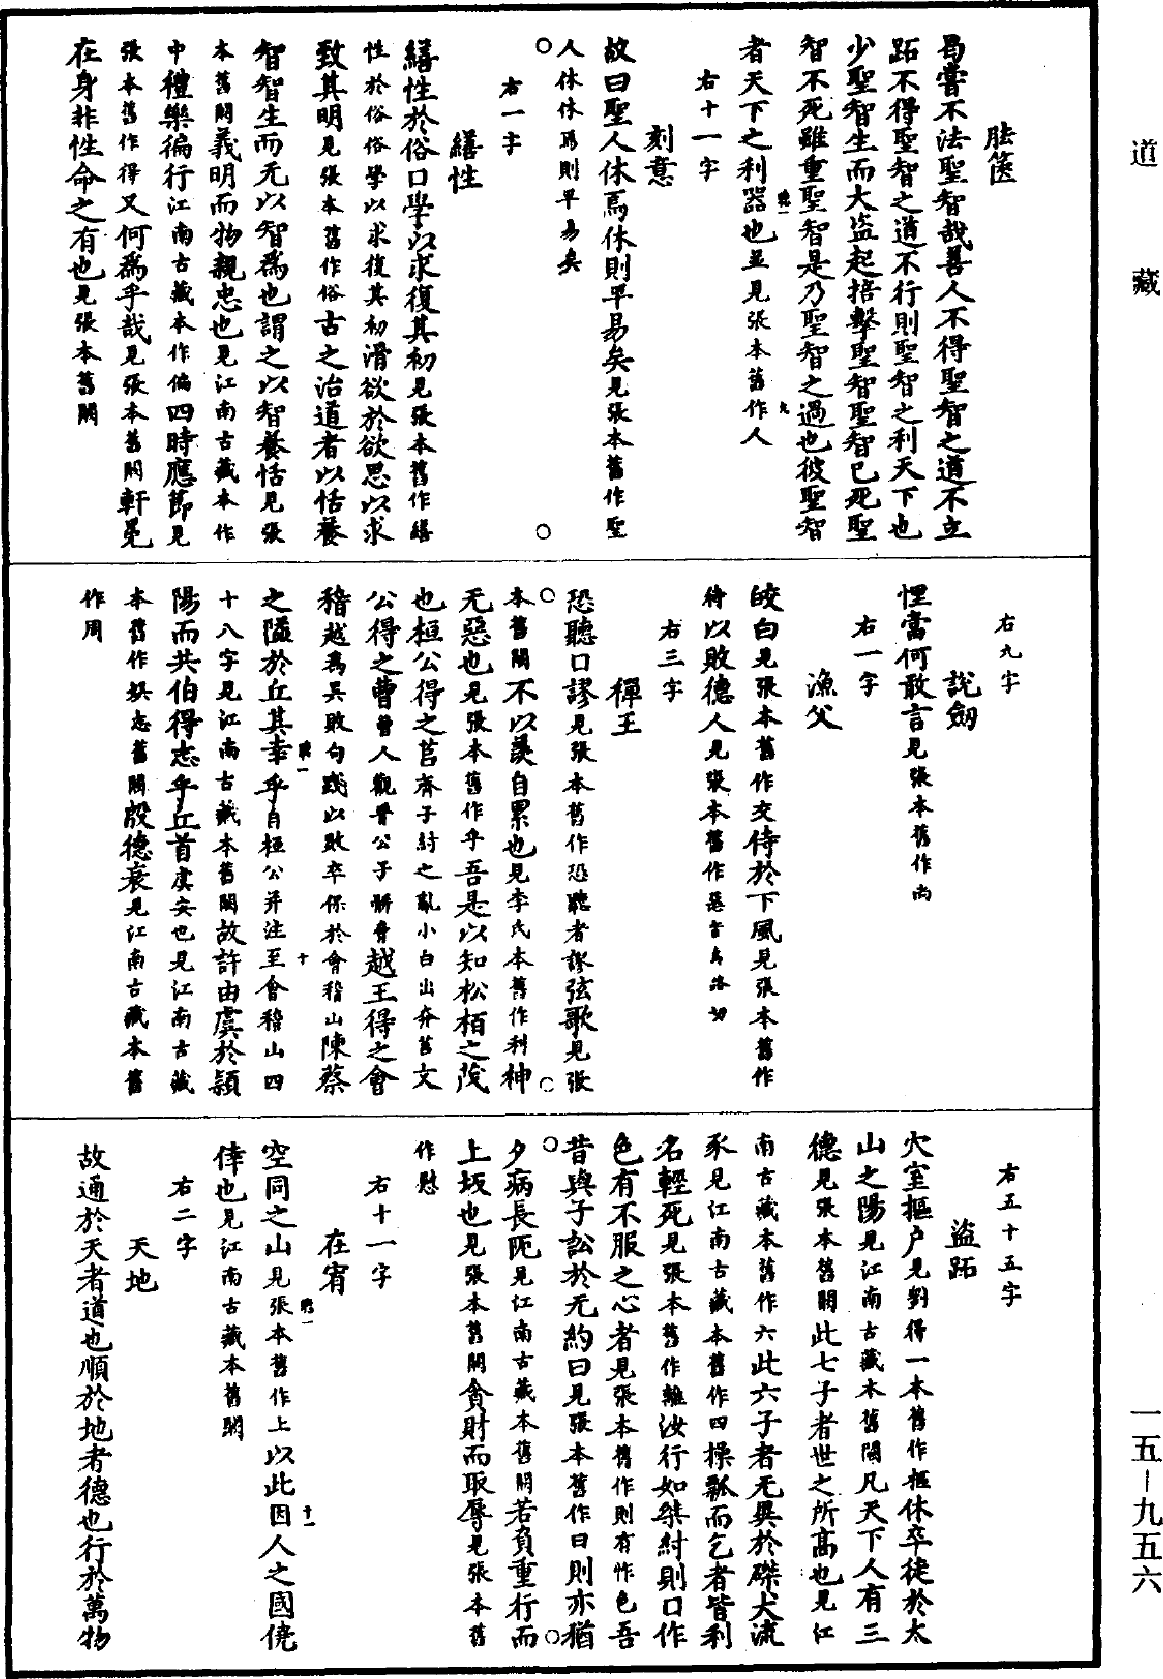 道藏
胠篋
曷嘗不法聖智哉善人不得聖智之道不立
跖不得聖智之道不行則聖智之利天下也
少聖智生而大盜起掊擊聖智聖智已死聖
智不死雖重聖智是乃聖智之過也彼聖智
者天下之利器也並見張本舊作人
右十一字
刻意
故曰聖人休焉休則平易矣見張本舊作聖
人休休焉則平易矣
右一字
繕性
繕性於俗口學以求復其初見張本舊作繕
性於俗俗學以求復其初滑欲於欲思以求
致其明見張本舊作俗古之治道者以恬養
智智生而无以智爲也謂之以智養恬見張
本舊闕義明而物親忠也見江南古藏本作
中禮樂徧行江南古藏本作偏四時應節見
張本舊作得又何爲乎哉見張本舊闕軒冕
在身非性命之有也見張本舊闕
右九字
說劒
悝當何敢言見張本舊作尚
右一字
漁父
皎白見張本舊作交侍於下風見張本舊作
待以敗德人見張本舊作惡音烏洛切
右三字
禪王
恐聽口謬見張本舊作恐聽者謬弦歌見張
本舊闕不以羨自累也見李氏本舊作利神
无惡也見張本舊作乎吾是以知松柏之茂
也桓公得之莒齊子紂之亂小白出奔莒文
公得之曹曹人觀晉公子駢脅越王得之會
稽越爲吳敗句踐以敗卒保於會稽山陳蔡
之隘於丘其幸乎自桓公并注至會稽山四
十八字見江南古藏本舊闕故許由虞於潁
陽而共伯得志乎丘首虞安也見江南古藏
本舊作娛志舊闕殷德衰見江南古藏本舊
作周
右五十五字
盜跖
穴室摳户見劉得一本舊作樞休卒徒於太
山之陽見江南古藏本舊闕凡天下人有三
德見張本舊闕此七子者世之所高也見江
南古藏本舊作六此六子者无異於磔犬流
豕見江南古藏本舊作四操瓢而乞者皆利
名輕死見張本舊作離汝行如桀紂則口作
色有不服之心者見張本舊作則有怍色吾
昔與子訟於无約曰見張本舊作日則亦猶
夕病長阨見江南古藏本舊闕若負重行而
上坂也見張本舊闕貪財而取辱見張本舊
作慰
右十一字
在宥
空同之山見張本舊作上以此因人之國僥
倖也見江南古藏本舊闕
右二字
天地
故通於天者道也順於地者德也行於萬物
一五—九五六